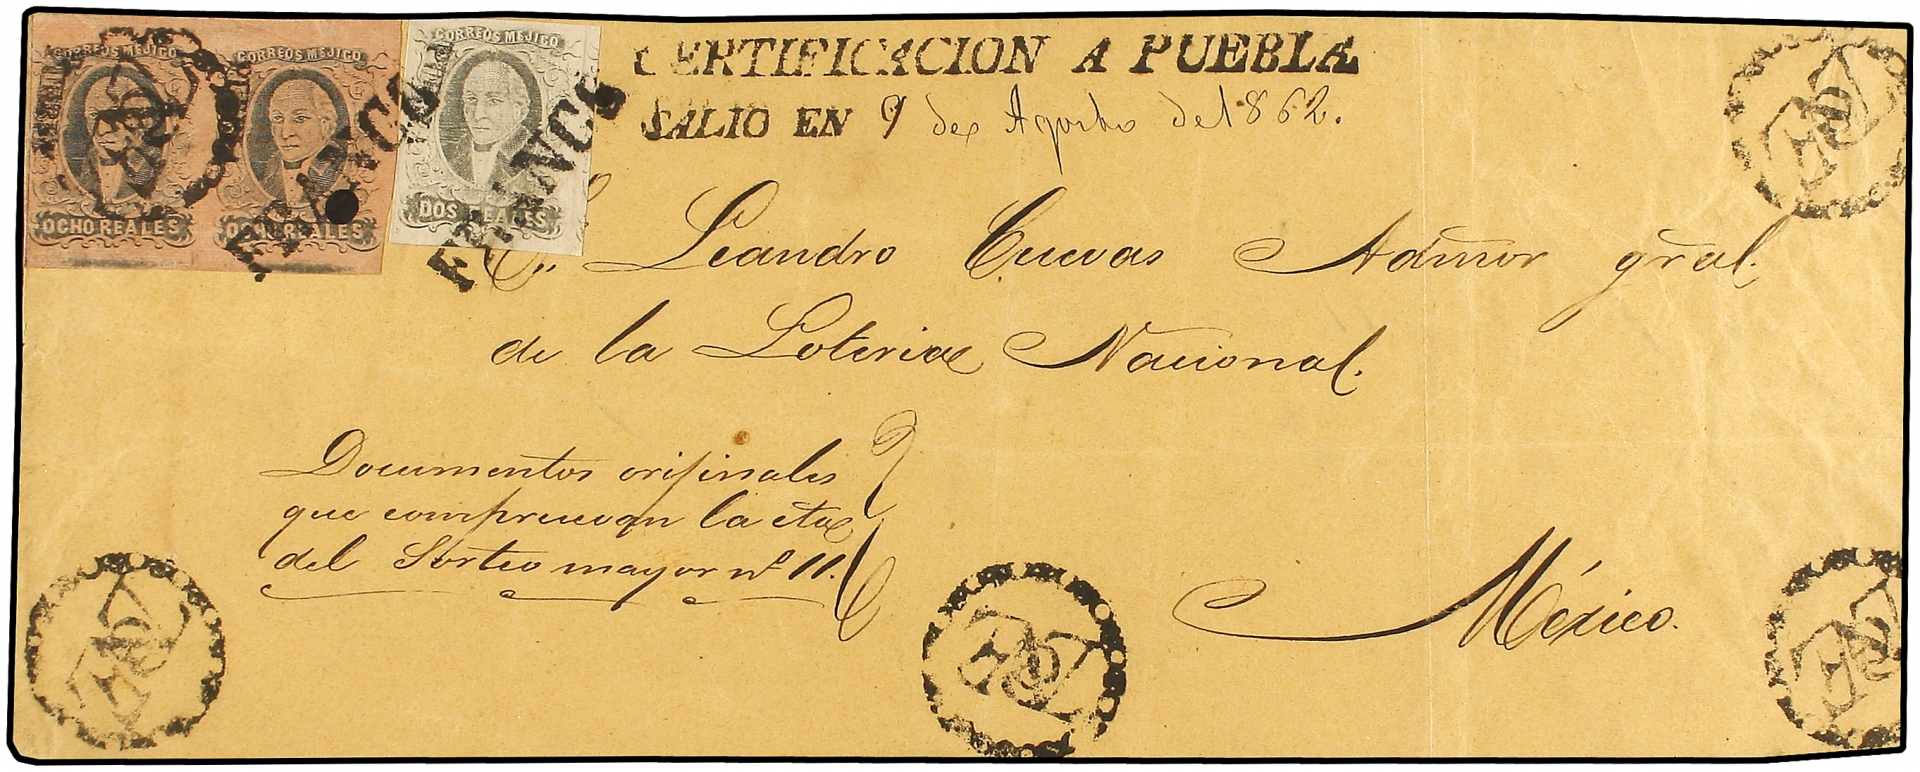 CORREOS MEJICO CORREOS MEJICO CORREOS MEJICO
OCHO REALES OCHO REALES DOS REALES
FRANCO FRANCO
CERTIFICACION A PUEBLA
SALIO EN 9 de Agosto de 1862.
C. Leandro Cuevas Admor gral.
de la Loteria Nacional.
Documentos originales
que comprueban la cta
del Sorteo mayor nº 11.
México.